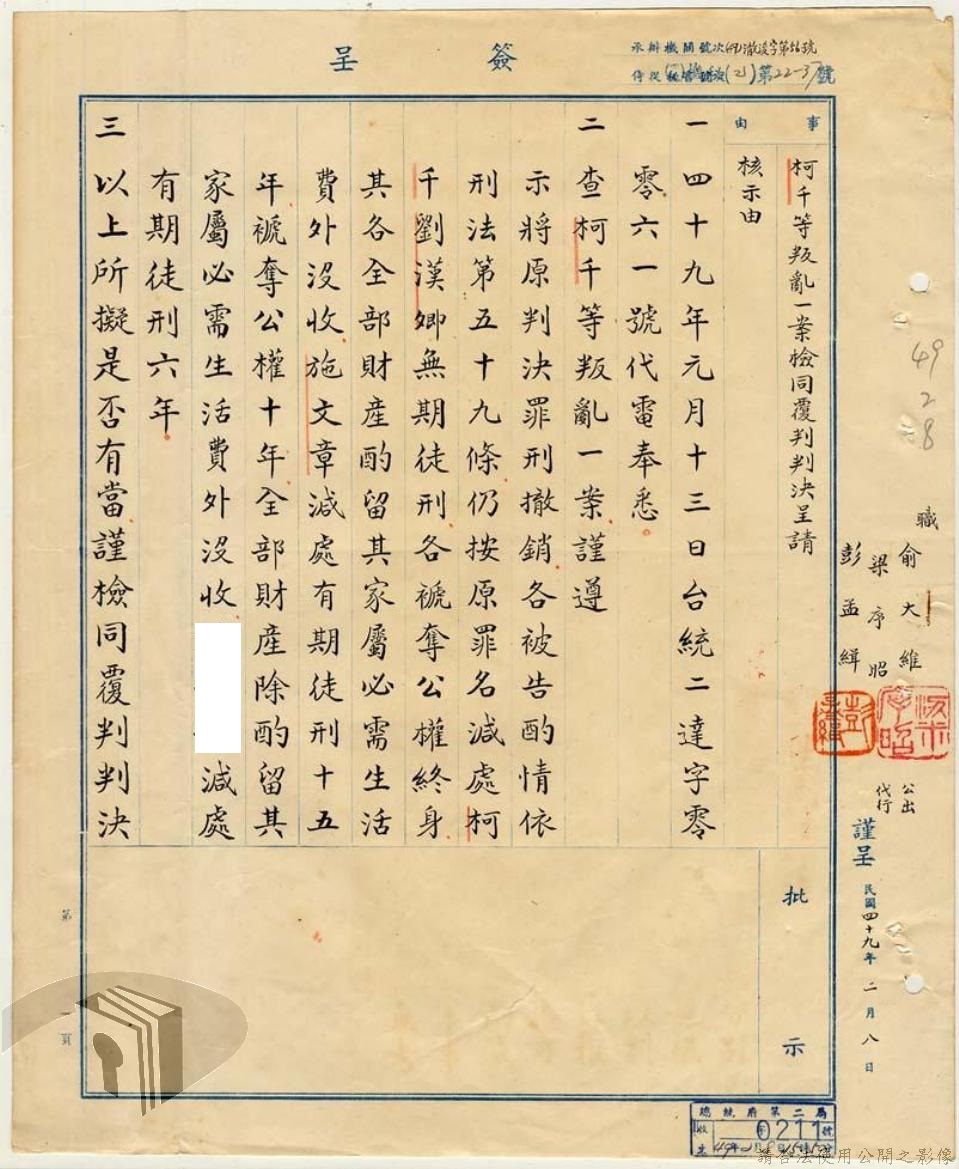 簽呈
承辦機關號次(49)澈淩字第56號
事由
柯千等叛亂一案檢同覆判判決呈請
核示由
一四十九年元月十三日台統二達字零
零六一號代電奉悉。
二查柯千等叛亂一案謹遵
示將原判決罪刑撤銷各被告酌情依
刑法第五十九條仍按原罪名減處柯
千劉漢卿無期徒刑各褫奪公權終身
其各全部財產酌留其家屬必需生活
費外沒收施文章減處有期徒刑十五
年褫奪公權十年全部財產除酌留其
家屬必需生活費外沒收
減處
有期徒刑六年
三以上所擬是否有當謹檢同覆判判決
批示
49
2
8
職
俞大維
梁序昭
彭孟緝
公出
代行
謹呈
民國四十九年二月八日
第一頁
總統府第二局
收
0211
號
請合法使用公開之影像